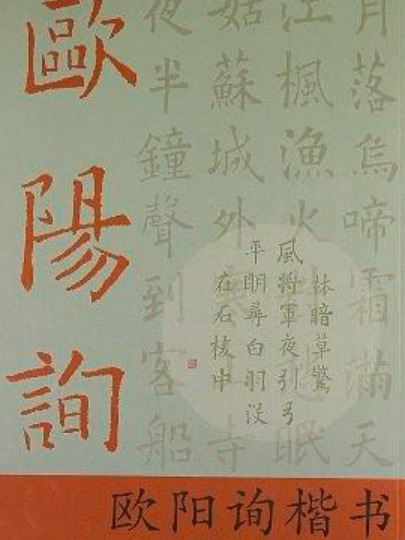 歐陽詢
月落烏啼霜滿天
江楓漁火對愁眠
姑蘇城外寒山寺
夜半鐘聲到客船
林暗草驚
風將軍夜引弓
平明尋白羽没
在石棱中
欧阳询楷书